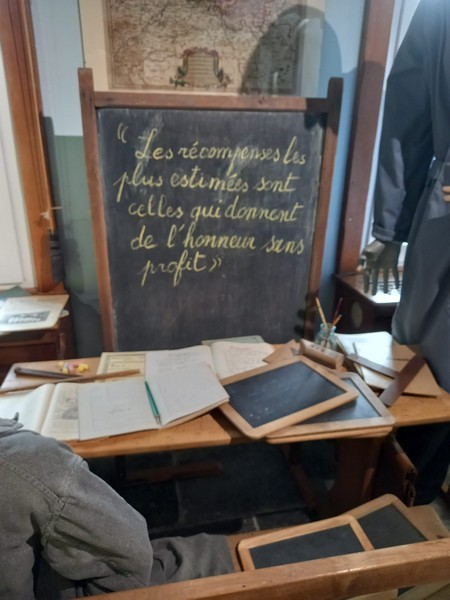 « Les récompenses les
plus estimées sont
celles qui donnent
de l'honneur sans
profit »